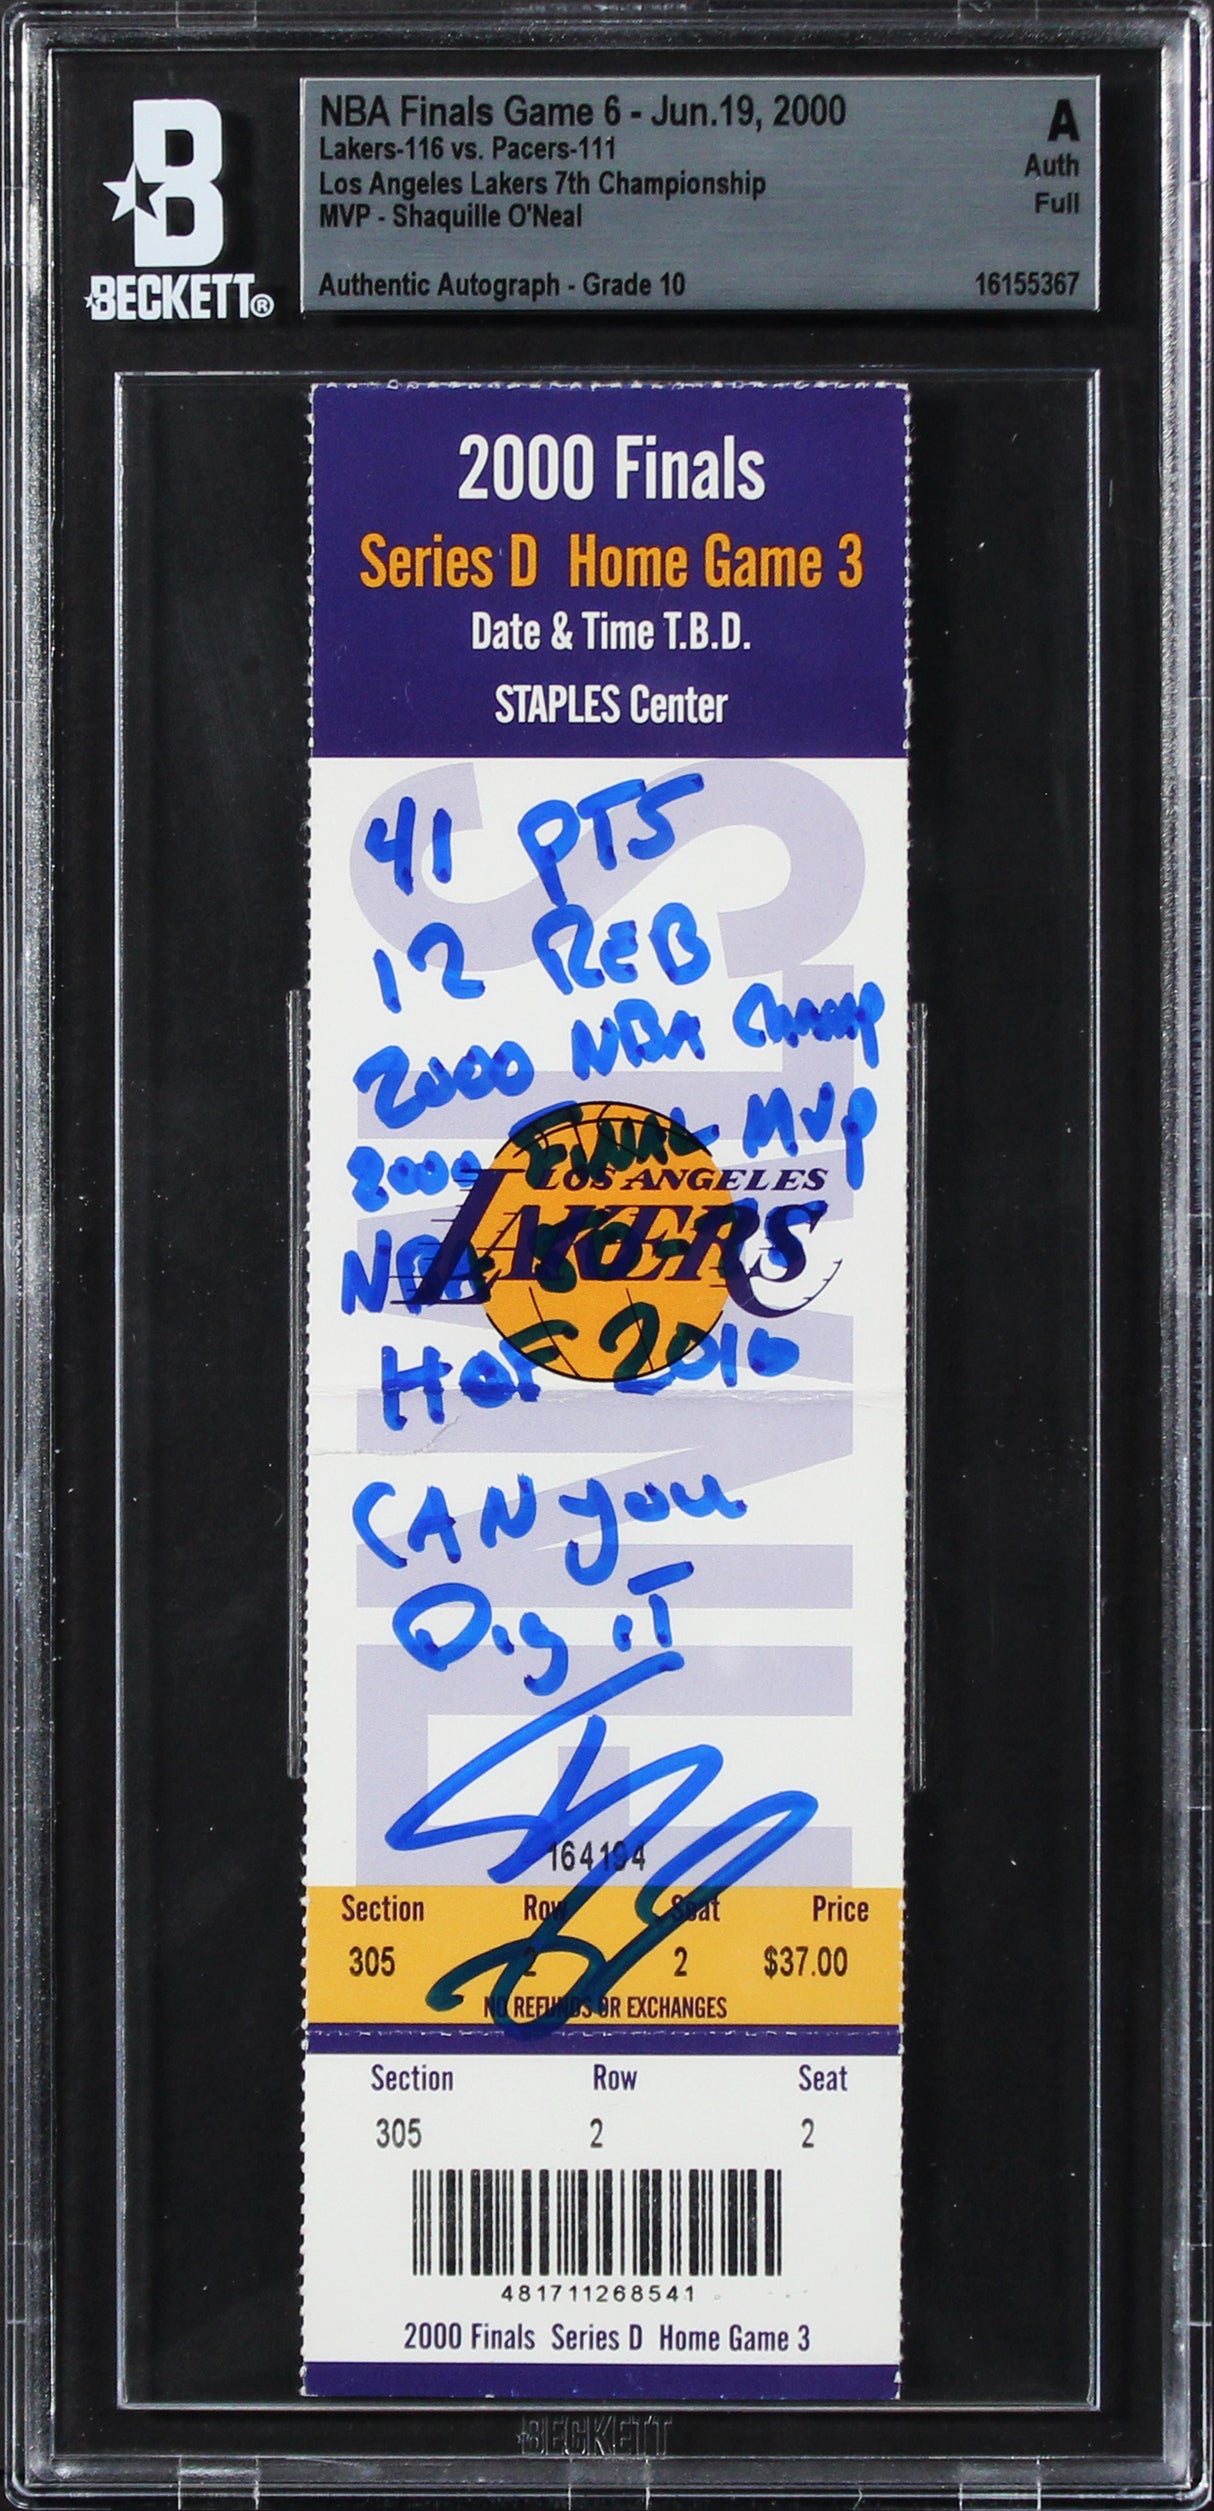 NBA Finals Game 6 - Jun.19, 2000
Lakers-116 vs. Pacers-111
Los Angeles Lakers 7th Championship
MVP - Shaquille O'Neal
Authentic Autograph - Grade 10
A
Auth
Full
16155367
B
BECKETT®
2000 Finals
Series D Home Game 3
Date & Time T.B.D.
STAPLES Center
41 PTS
12 REB
2000 NBA CHAMP
2000 FINAL MVP
LOS ANGELES
LAKERS
NBA 50-75
HOF 2016
CAN you
Dig iT
164194
Section Row Seat Price
305 2 2 $37.00
NO REFUNDS OR EXCHANGES
Section Row Seat
305 2 2
481711268541
2000 Finals Series D Home Game 3
BECKETT